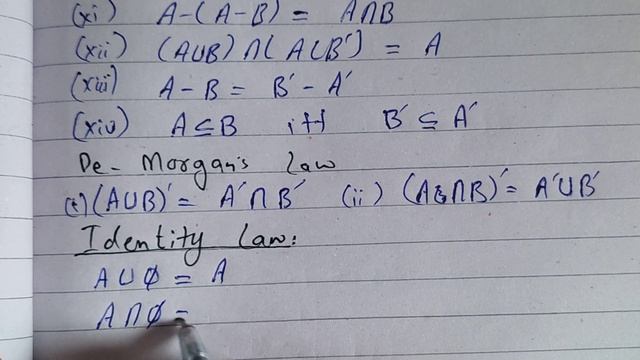 (xi) A-(A-B) = A∩B
(xii) (A∪B)∩(A∪B′) = A
(xiii) A-B = B′-A′
(xiv) A⊆B iff B′⊆A′
De-Morgan's law
(i) (A∪B)′ = A′∩B′ (ii) (A∩B)′ = A′∪B′
Identity law:
A∪φ = A
A∩φ =